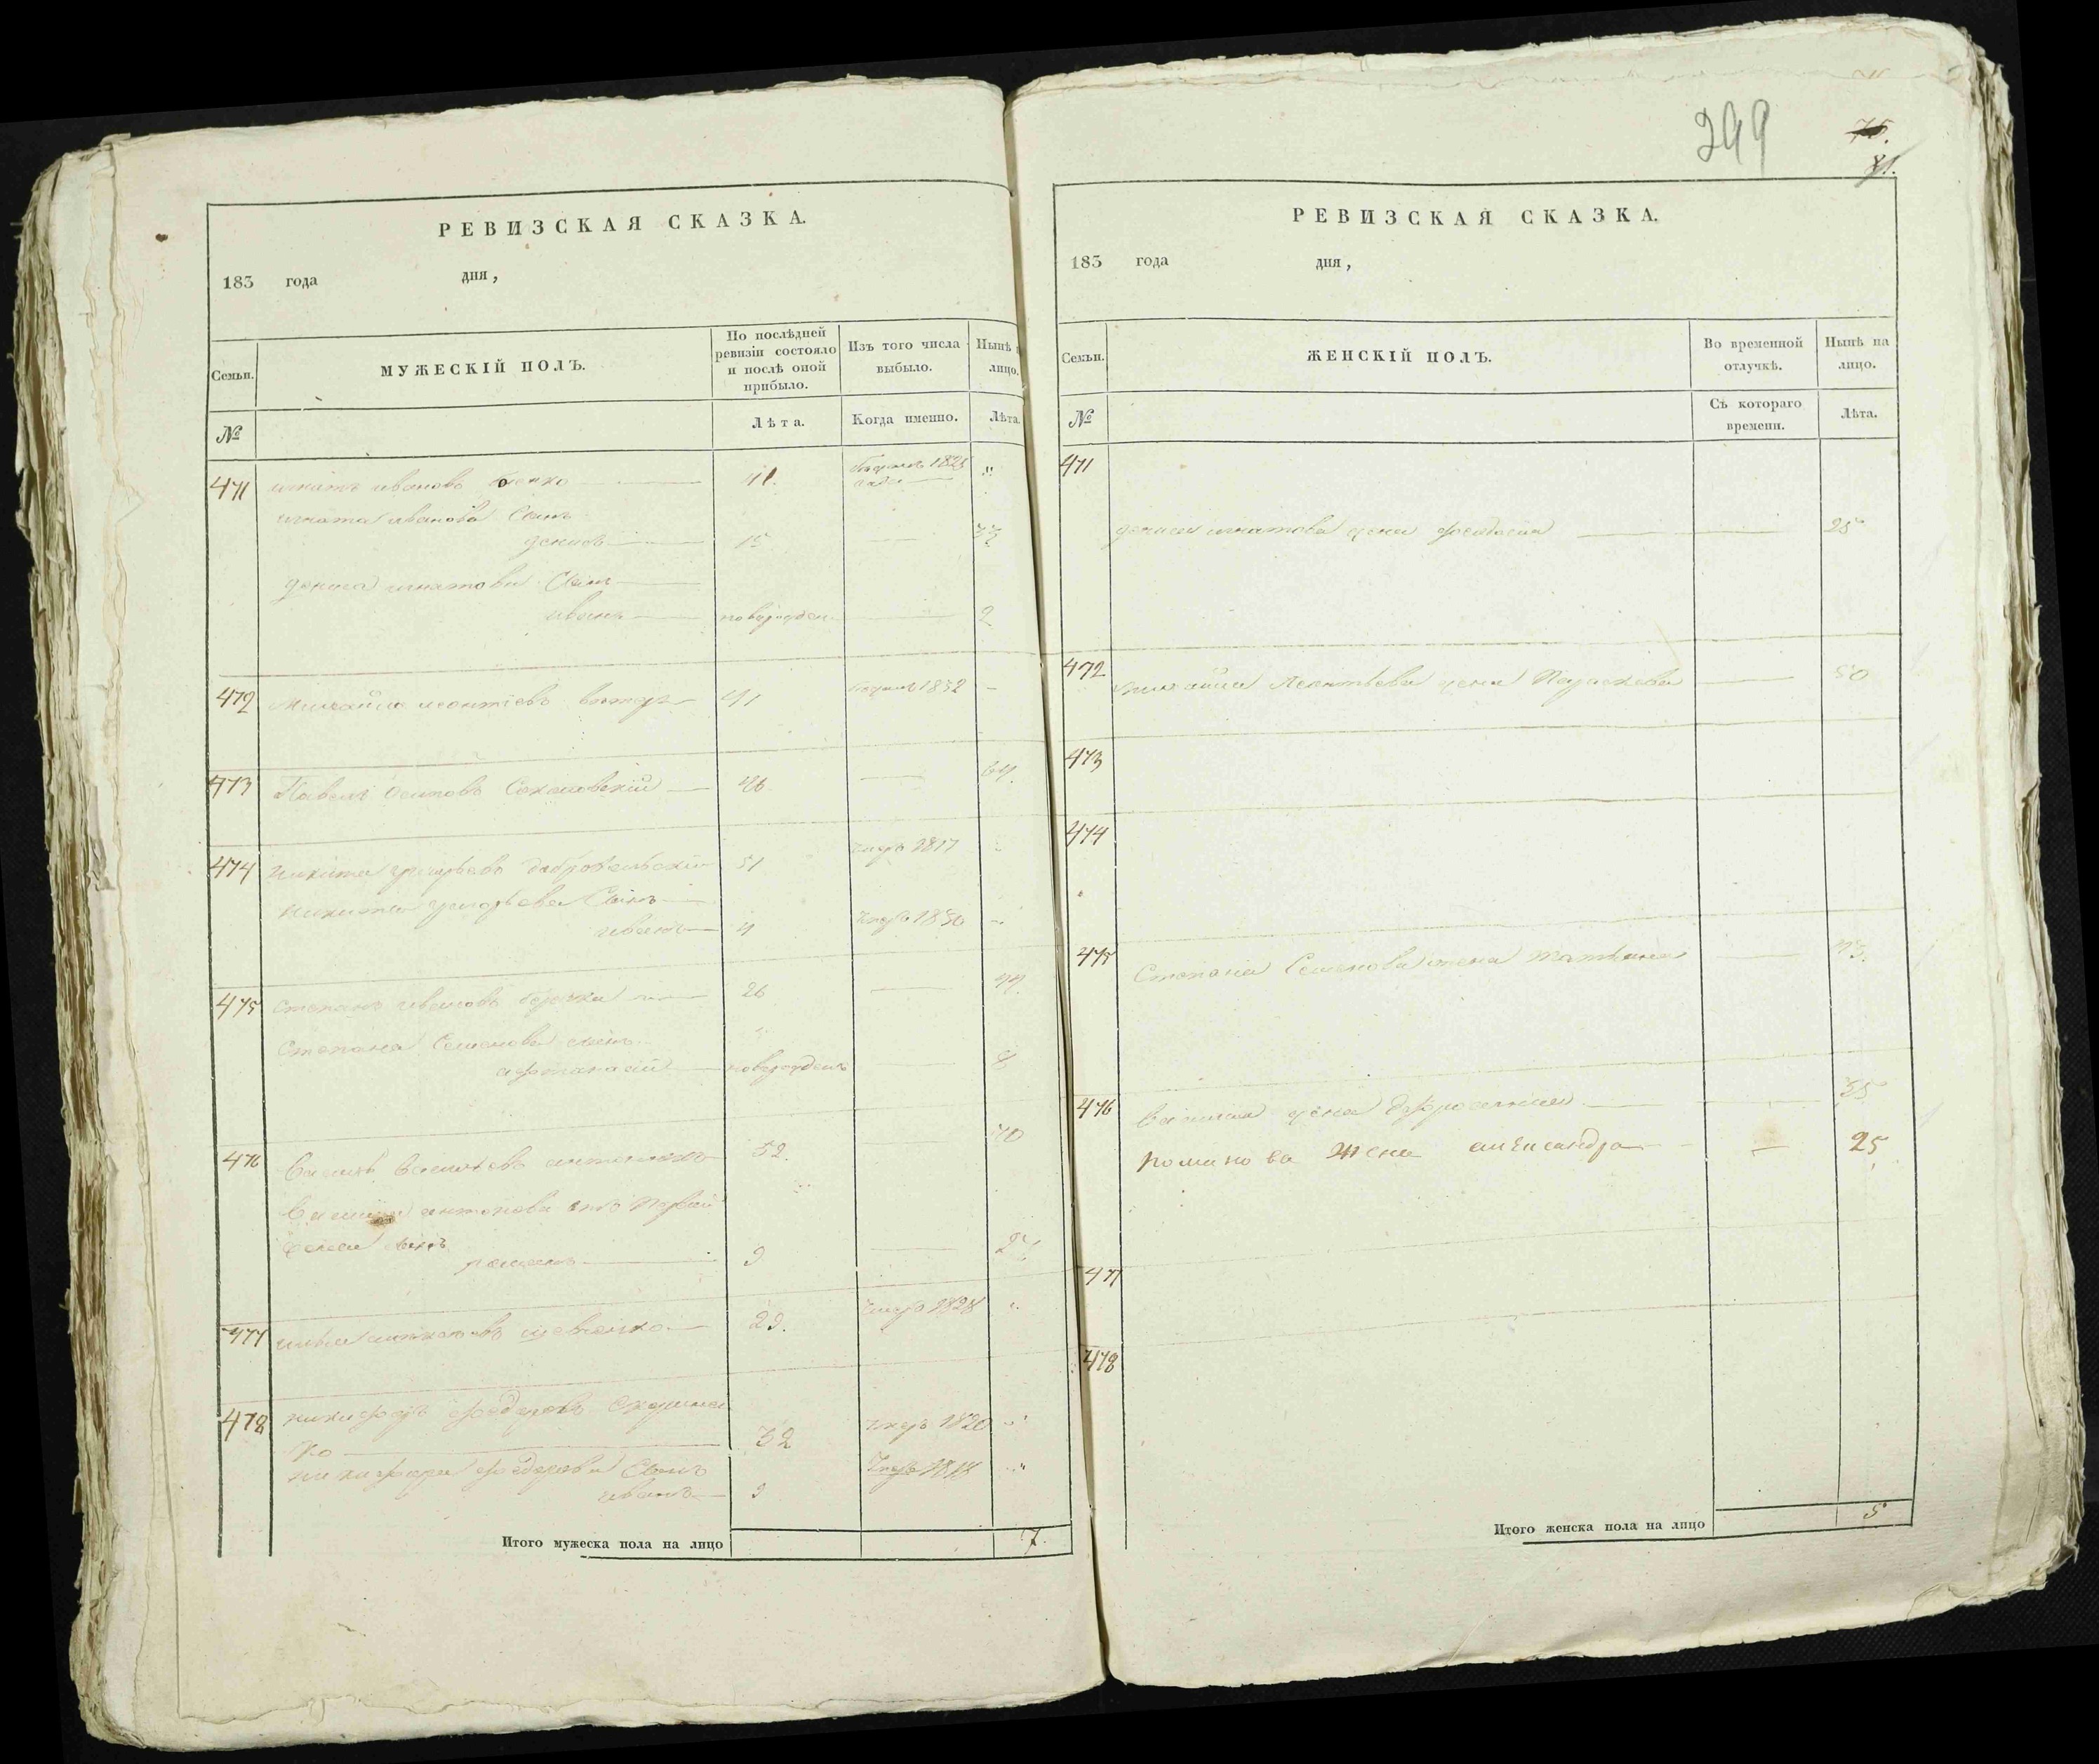 299
75.
81.
РЕВИЗСКАЯ СКАЗКА.
183 года дня,
Семьи. МУЖЕСКІЙ ПОЛЪ. По послѣдней ревизіи состояло и послѣ оной прибыло. Изъ того числа выбыло. Нынѣ лицо.
№ Лѣта. Когда именно. Лѣта.
471 игнатъ ивановъ 41. 1825
игната иванова Сынъ
денисъ 15 33
дениса игнатова Сынъ
иванъ новорожден. 2
472 Михайла леонтіевъ 41 1832
473 Павелъ осиповъ 46 64.
474 никита григорьевъ 51 умеръ 1817
никиты григорьева Сынъ
иванъ 4 умеръ 1830
475 степанъ ивановъ 26 44.
Степана Семенова сынъ
афанасій новорожденъ 8
476 Василій Васильевъ 52. 70
Василія антонова отъ первой
жены сынъ
романъ 9 27
477 илья шевченко 29. умеръ 1828
478 никифоръ федоровъ
ко 32 умеръ 1820
никифора федорова Сынъ
иванъ 9 умеръ 1818
Итого мужеска пола на лицо 7.
РЕВИЗСКАЯ СКАЗКА.
183 года дня,
Семьи. ЖЕНСКІЙ ПОЛЪ. Во временной отлучкѣ. Нынѣ на лицо.
№ Съ котораго времени. Лѣта.
471
дениса игнатова жена феодосия 25
472 михайла Леонтьева жена Параскева 50
473
474
475 Степана Семенова жена татьяна 43.
476 Василия жена 35
романова жена александра 25
477
478
Итого женска пола на лицо 5